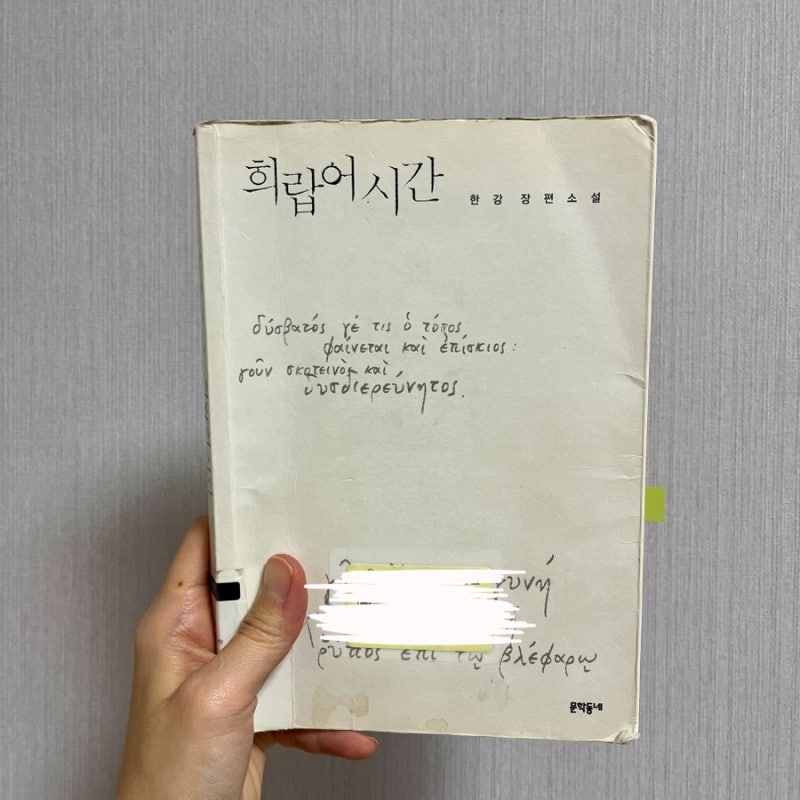 희랍어 시간
한강 장편소설
δύσβατός γέ τις ὁ τόπος
φαίνεται καὶ ἐπίσκιος:
γοῦν σκοτεινὸς καὶ
δυσδιερεύνητος.
γυνή
ῥύπος ἐπὶ τῷ βλέφαρῳ
문학동네